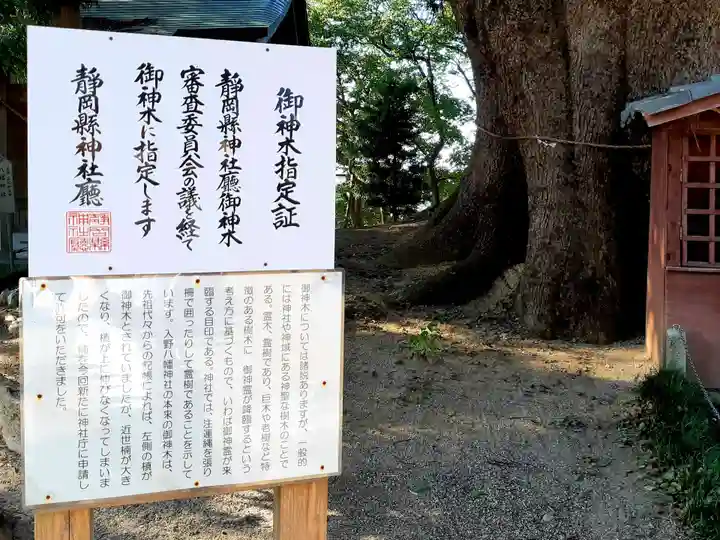 御神木指定証
静岡縣神社廳御神木
審査委員会の議を経て
御神木に指定します
静岡縣神社廳
御神木については諸説ありますが、一般的
には神社や神域にある神聖な樹木のことで
ある。霊木、霊樹であり、巨木や老樹など特
徴のある樹木に 御神霊が降臨するという
考え方に基づくもので、いわば御神霊が来
臨する目印である。神社では、注連縄を張り
柵で囲ったりして霊樹であることを示して
います。入野八幡神社の本来の御神木は、
先祖代々からの記帳によれば、左側の槙が
御神木とされていましたが、近世楠が大き
くなり、槙が上に伸びなくなってしまいま
したので、楠を今回新たに神社庁に申請し
て許可をいただきました。